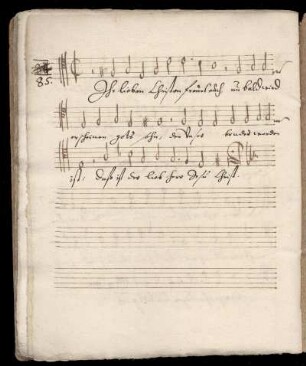 85.
Ihr lieben Christen freut euch nu bald wird
erscheinen gots sohn, der unser bruder worden
ist, dass ist der lieb Herr Jesu Christ.